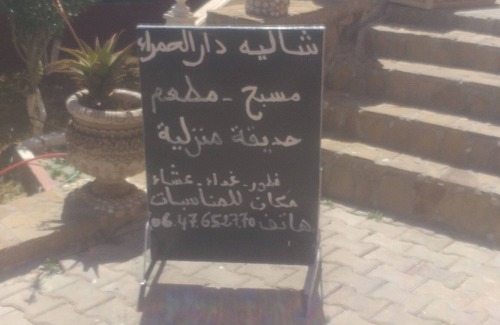 شاليه دار الحمراء
مسبح - مطعم
حديقة منزلية
فطور - غداء - عشاء
مكان للمناسبات
هاتف 06.47.652770